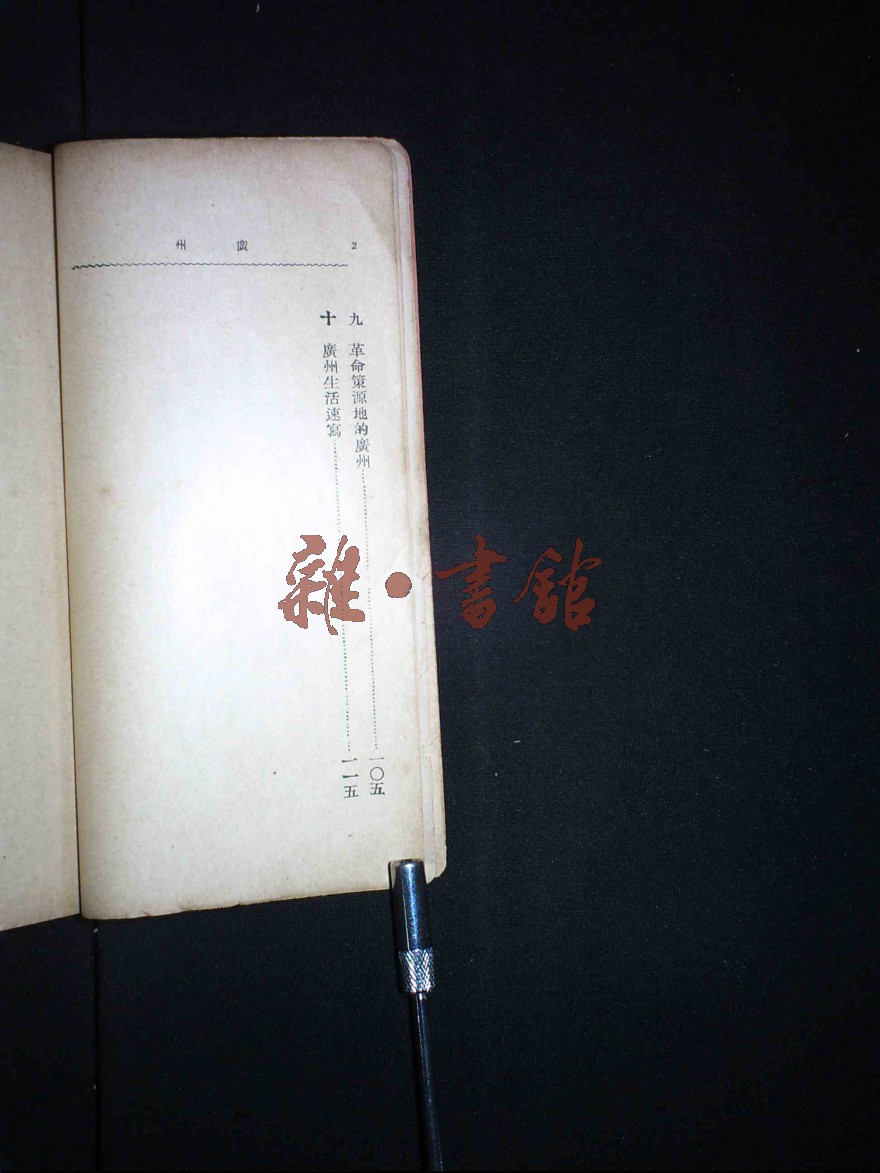 廣州
2
九 革命策源地的廣州 一〇五
十 廣州生活速寫 一一五
雜·書館